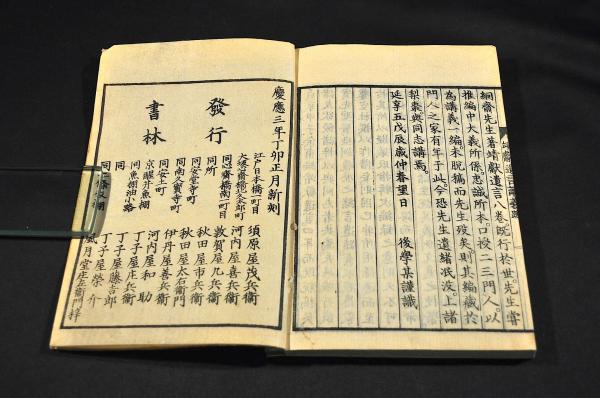 絅齋先生著靖獻遺言八卷既行於世先生嘗
推編中大義所係忠誠所本口授二三門人以
為講義一編未脱稿而先生歿矣則其編藏於
門人之家有年于此今恐先生遺緒泯没上諸
梨棗與同志講焉
延享五戊辰歲仲春望日
後學某謹識
慶應三年丁卯正月新刻
發行
書林
江戸日本橋一町目 須原屋茂兵衞
大坂心齋橋北久太郎町 河内屋喜兵衞
同心齋橋南一町目 敦賀屋九兵衞
同所 秋田屋市兵衞
同安堂寺町 秋田屋太右衞門
同南久寳寺町 伊丹屋善兵衞
同安土町 河内屋和助
京醒井魚棚 丁子屋庄兵衞
同魚棚油小路 丁子屋藤吉郎
同 丁子屋榮介
風月堂庄左衞門梓